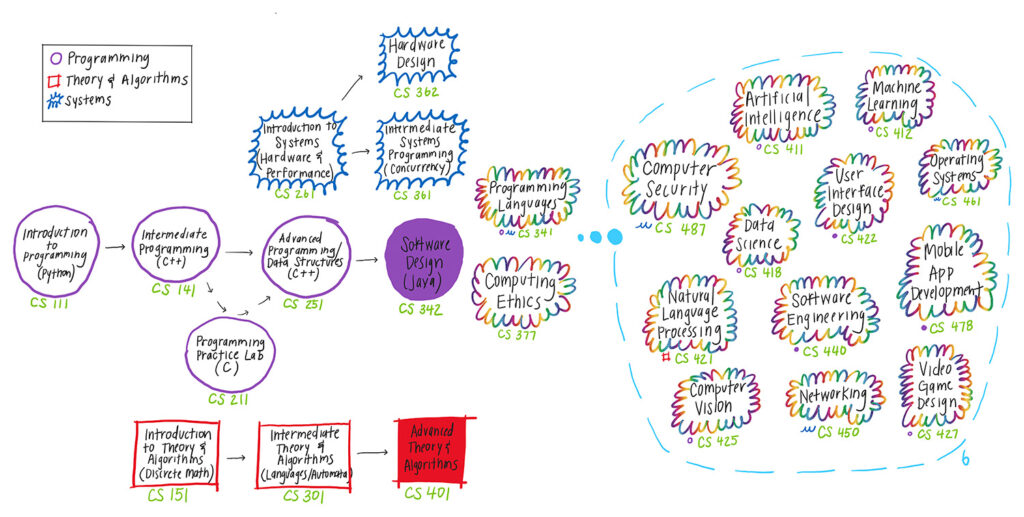 Programming
Theory & Algorithms
Systems
Hardware
Design
CS 362
Introduction to
Systems
(Hardware &
Performance)
CS 261
Intermediate
Systems
Programming
(Concurrency)
CS 361
Introduction
to
Programming
(Python)
CS 111
Intermediate
Programming
(C++)
CS 141
Programming
Practice Lab
(C)
CS 211
Advanced
Programming/
Data Structures
(C++)
CS 251
Software
Design
(Java)
CS 342
Introduction
to Theory &
Algorithms
(Discrete Math)
CS 151
Intermediate
Theory &
Algorithms
(Languages/Automata)
CS 301
Advanced
Theory &
Algorithms
CS 401
Programming
Languages
CS 341
Computing
Ethics
CS 377
Artificial
Intelligence
CS 411
Machine
Learning
CS 412
Computer
Security
CS 487
User
Interface
Design
CS 422
Operating
Systems
CS 461
Data
Science
CS 418
Mobile
App
Development
CS 478
Natural
Language
Processing
CS 421
Software
Engineering
CS 440
Computer
Vision
CS 425
Networking
CS 450
Video
Game
Design
CS 427
6